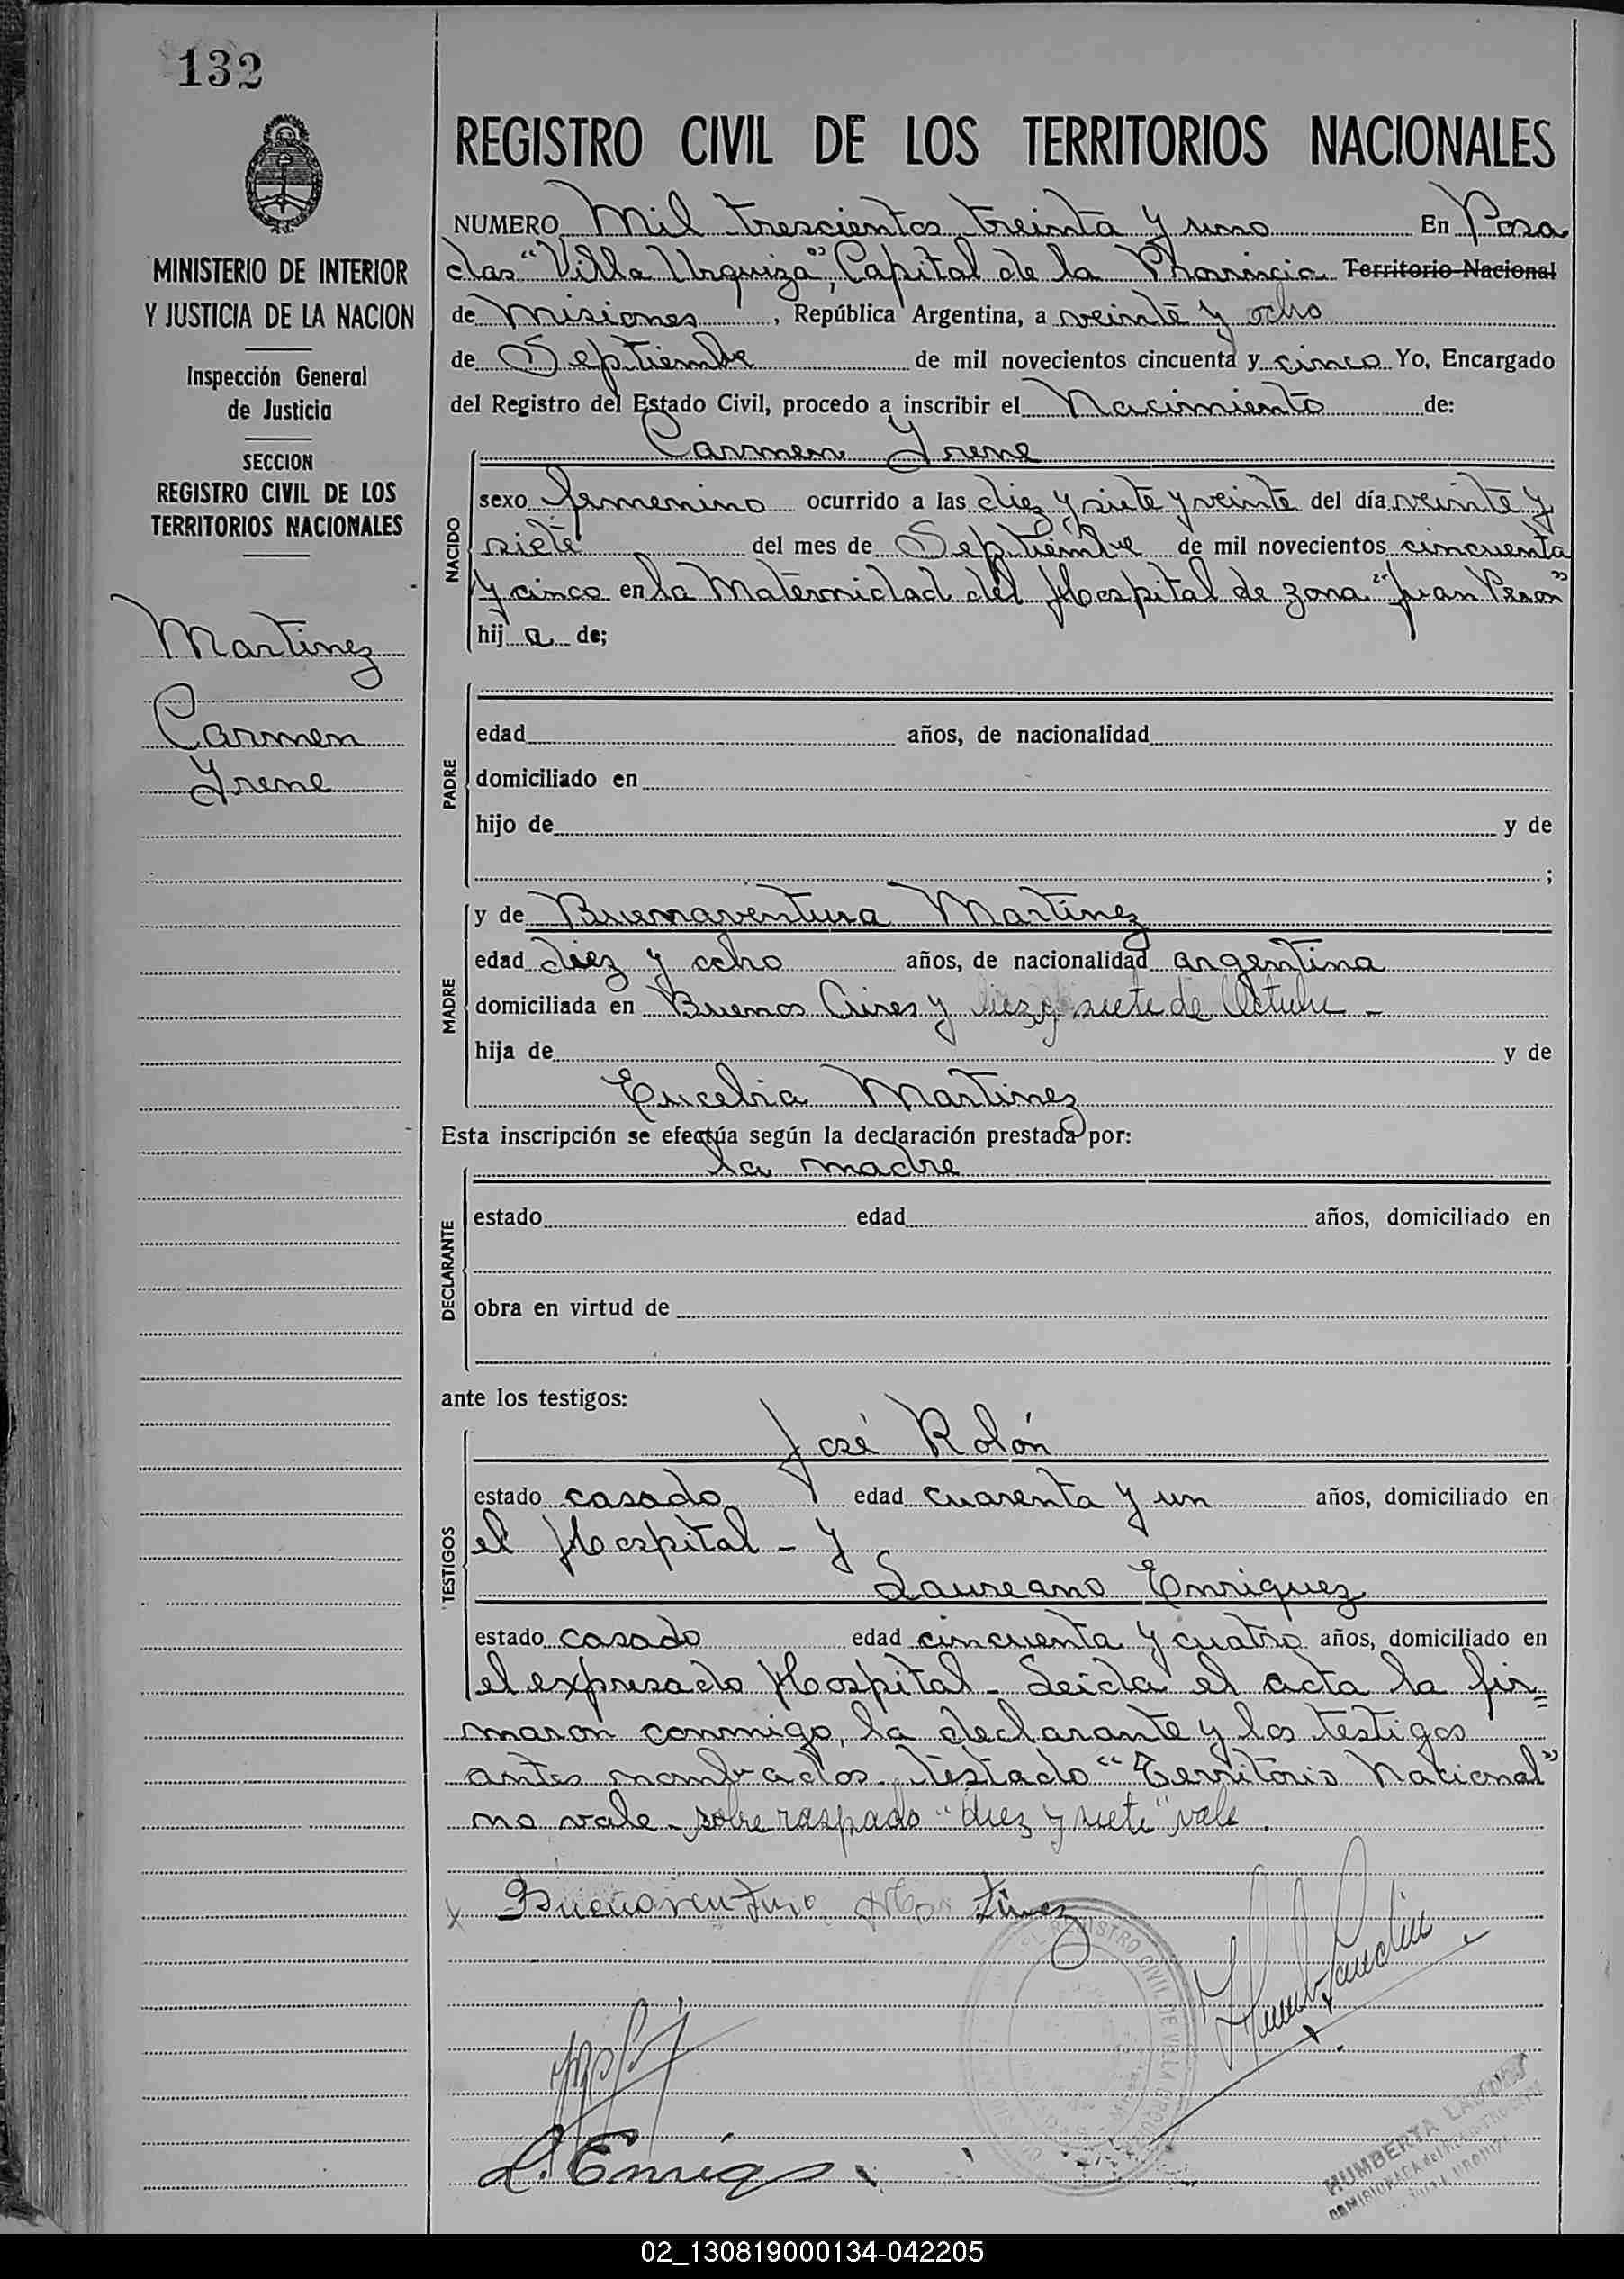 132
MINISTERIO DE INTERIOR
Y JUSTICIA DE LA NACION
Inspección General
de Justicia
SECCION
REGISTRO CIVIL DE LOS
TERRITORIOS NACIONALES
Martinez
Carmen
Irene
REGISTRO CIVIL DE LOS TERRITORIOS NACIONALES
NUMERO Mil trescientos treinta y uno En Posa
das "Villa Urquiza", Capital de la Provincia Territorio Nacional
de Misiones, República Argentina, a veinte y ocho
de Septiembre de mil novecientos cincuenta y cinco Yo, Encargado
del Registro del Estado Civil, procedo a inscribir el Nacimiento de:
Carmen Irene
NACIDO
sexo femenino ocurrido a las diez y siete y veinte del día veinte y
siete del mes de Septiembre de mil novecientos cincuenta
y cinco en la Maternidad del Hospital de zona "Juan Peron"
hija de;
PADRE
edad años, de nacionalidad
domiciliado en
hijo de y de
;
MADRE
y de Buenaventura Martinez
edad diez y ocho años, de nacionalidad argentina
domiciliada en Buenos Aires y diez y siete de Octubre -
hija de y de
Martinez
Esta inscripción se efectúa según la declaración prestada por:
la madre
DECLARANTE
estado edad años, domiciliado en
obra en virtud de
ante los testigos:
TESTIGOS
José Rolón
estado casado edad cuarenta y un años, domiciliado en
el Hospital - y
Laureano Enriquez
estado casado edad cincuenta y cuatro años, domiciliado en
el expresado Hospital - Leida el acta la fir=
maron conmigo, la declarante y los testigos
antes nombrados. Testado "Territorio Nacional"
no vale - sobre raspado "diez y siete" vale.
x Buenaventura Martinez
L. Enriq
REGISTRO CIVIL DE VILLA URQUIZA
HUMBERTA
02_130819000134-042205